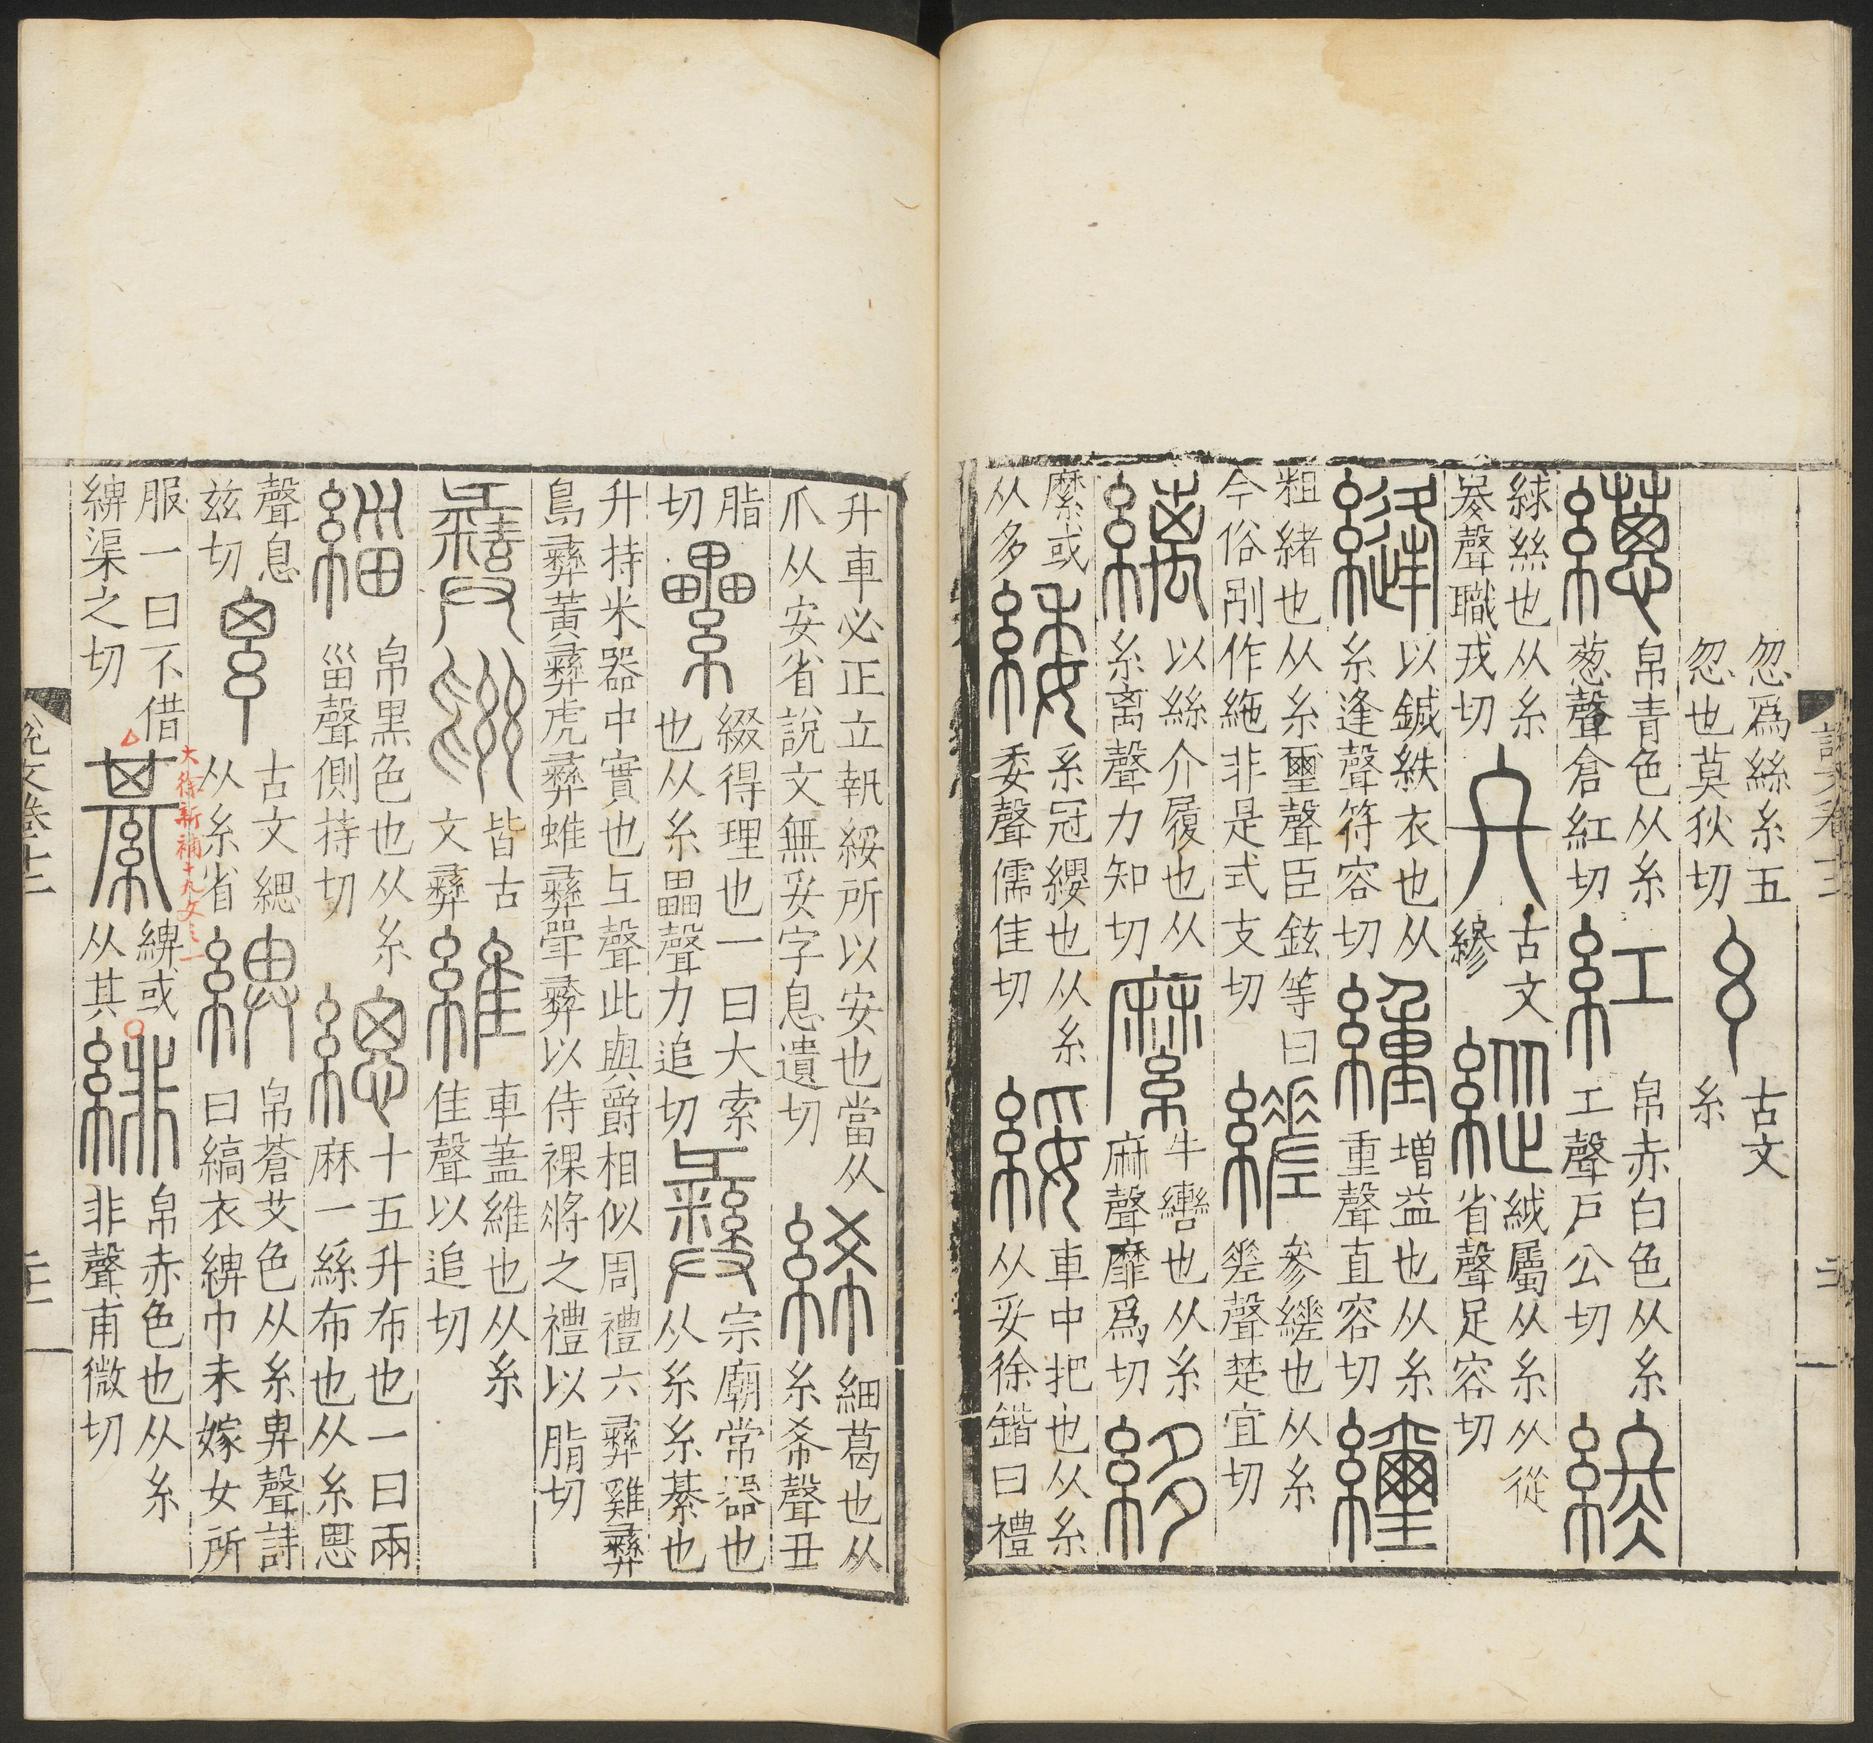 說文卷十二
忽爲絲糸五
忽也莫狄切
古文
糸
繱
帛青色从糸
葱聲倉紅切
紅
帛赤白色从糸
工聲戶公切
終
絿絲也从糸
聲職戎切
古文
終
縱
緎屬从糸从從
省聲足容切
縫
以鍼紩衣也从
糸逢聲符容切
緟
增益也从糸
重聲直容切
䌳
粗緒也从糸璽聲臣鉉等曰
今俗別作絁非是式支切
縒
參縒也从糸
差聲楚宜切
縭
以絲介履也从
糸离聲力知切
縻
牛轡也从糸
麻聲靡爲切
𦃟
縻或
从多
緌
系冠纓也从糸
委聲儒隹切
綏
車中把也从糸
从妥徐鍇曰禮
升車必正立執綏所以安也當从
爪从安省說文無妥字息遺切
絺
細葛也从
糸希聲丑
脂
切
纍
綴得理也一曰大索
也从糸畾聲力追切
彝
宗廟常器也
从糸糸綦也
升持米器中實也彑聲此與爵相似周禮六彝雞彝
鳥彝黃彝虎彝蜼彝斝彝以待祼將之禮以脂切
皆古
文彝
維
車蓋維也从糸
隹聲以追切
緇
帛黑色也从糸
甾聲側持切
緦
十五升布也一曰兩
麻一絲布也从糸恖
聲息
兹切
古文緦
从糸省
綥
帛蒼艾色从糸畀聲詩
曰縞衣綥巾未嫁女所
服一曰不借
綥渠之切
大徐新補十九文之一
綦
綥或
从其
緋
帛赤色也从糸
非聲甫微切
說文卷十二
二十一